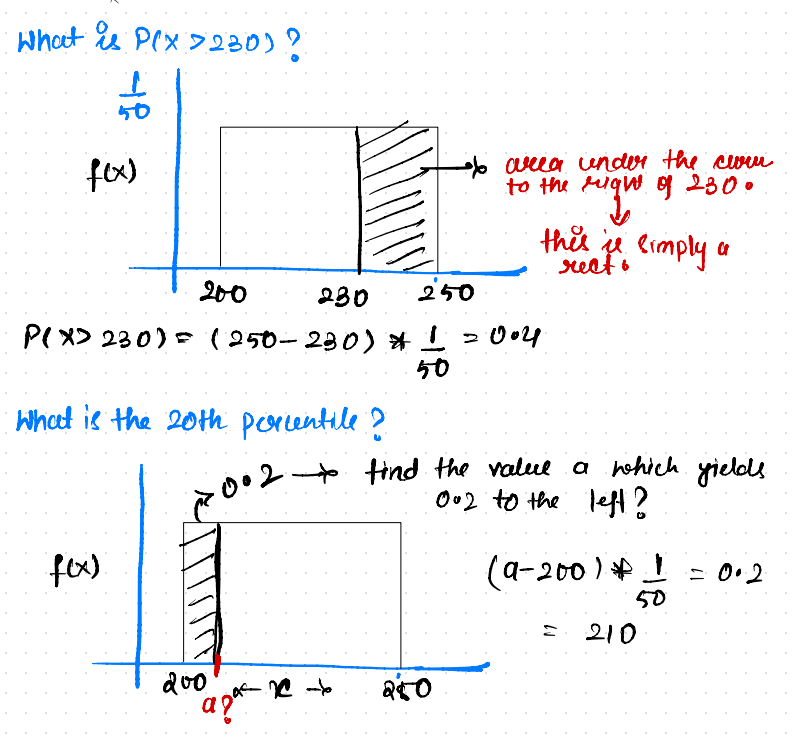 What is P(X > 230) ?
1/50
f(x)
area under the curve
to the right of 230.
this is simply a
rect.
200 230 250
P(X > 230) = (250 - 230) * 1/50 = 0.4
What is the 20th percentile ?
0.2 → find the value a which yields
0.2 to the left ?
f(x)
(a - 200) * 1/50 = 0.2
= 210
200 ← x → 250
a?